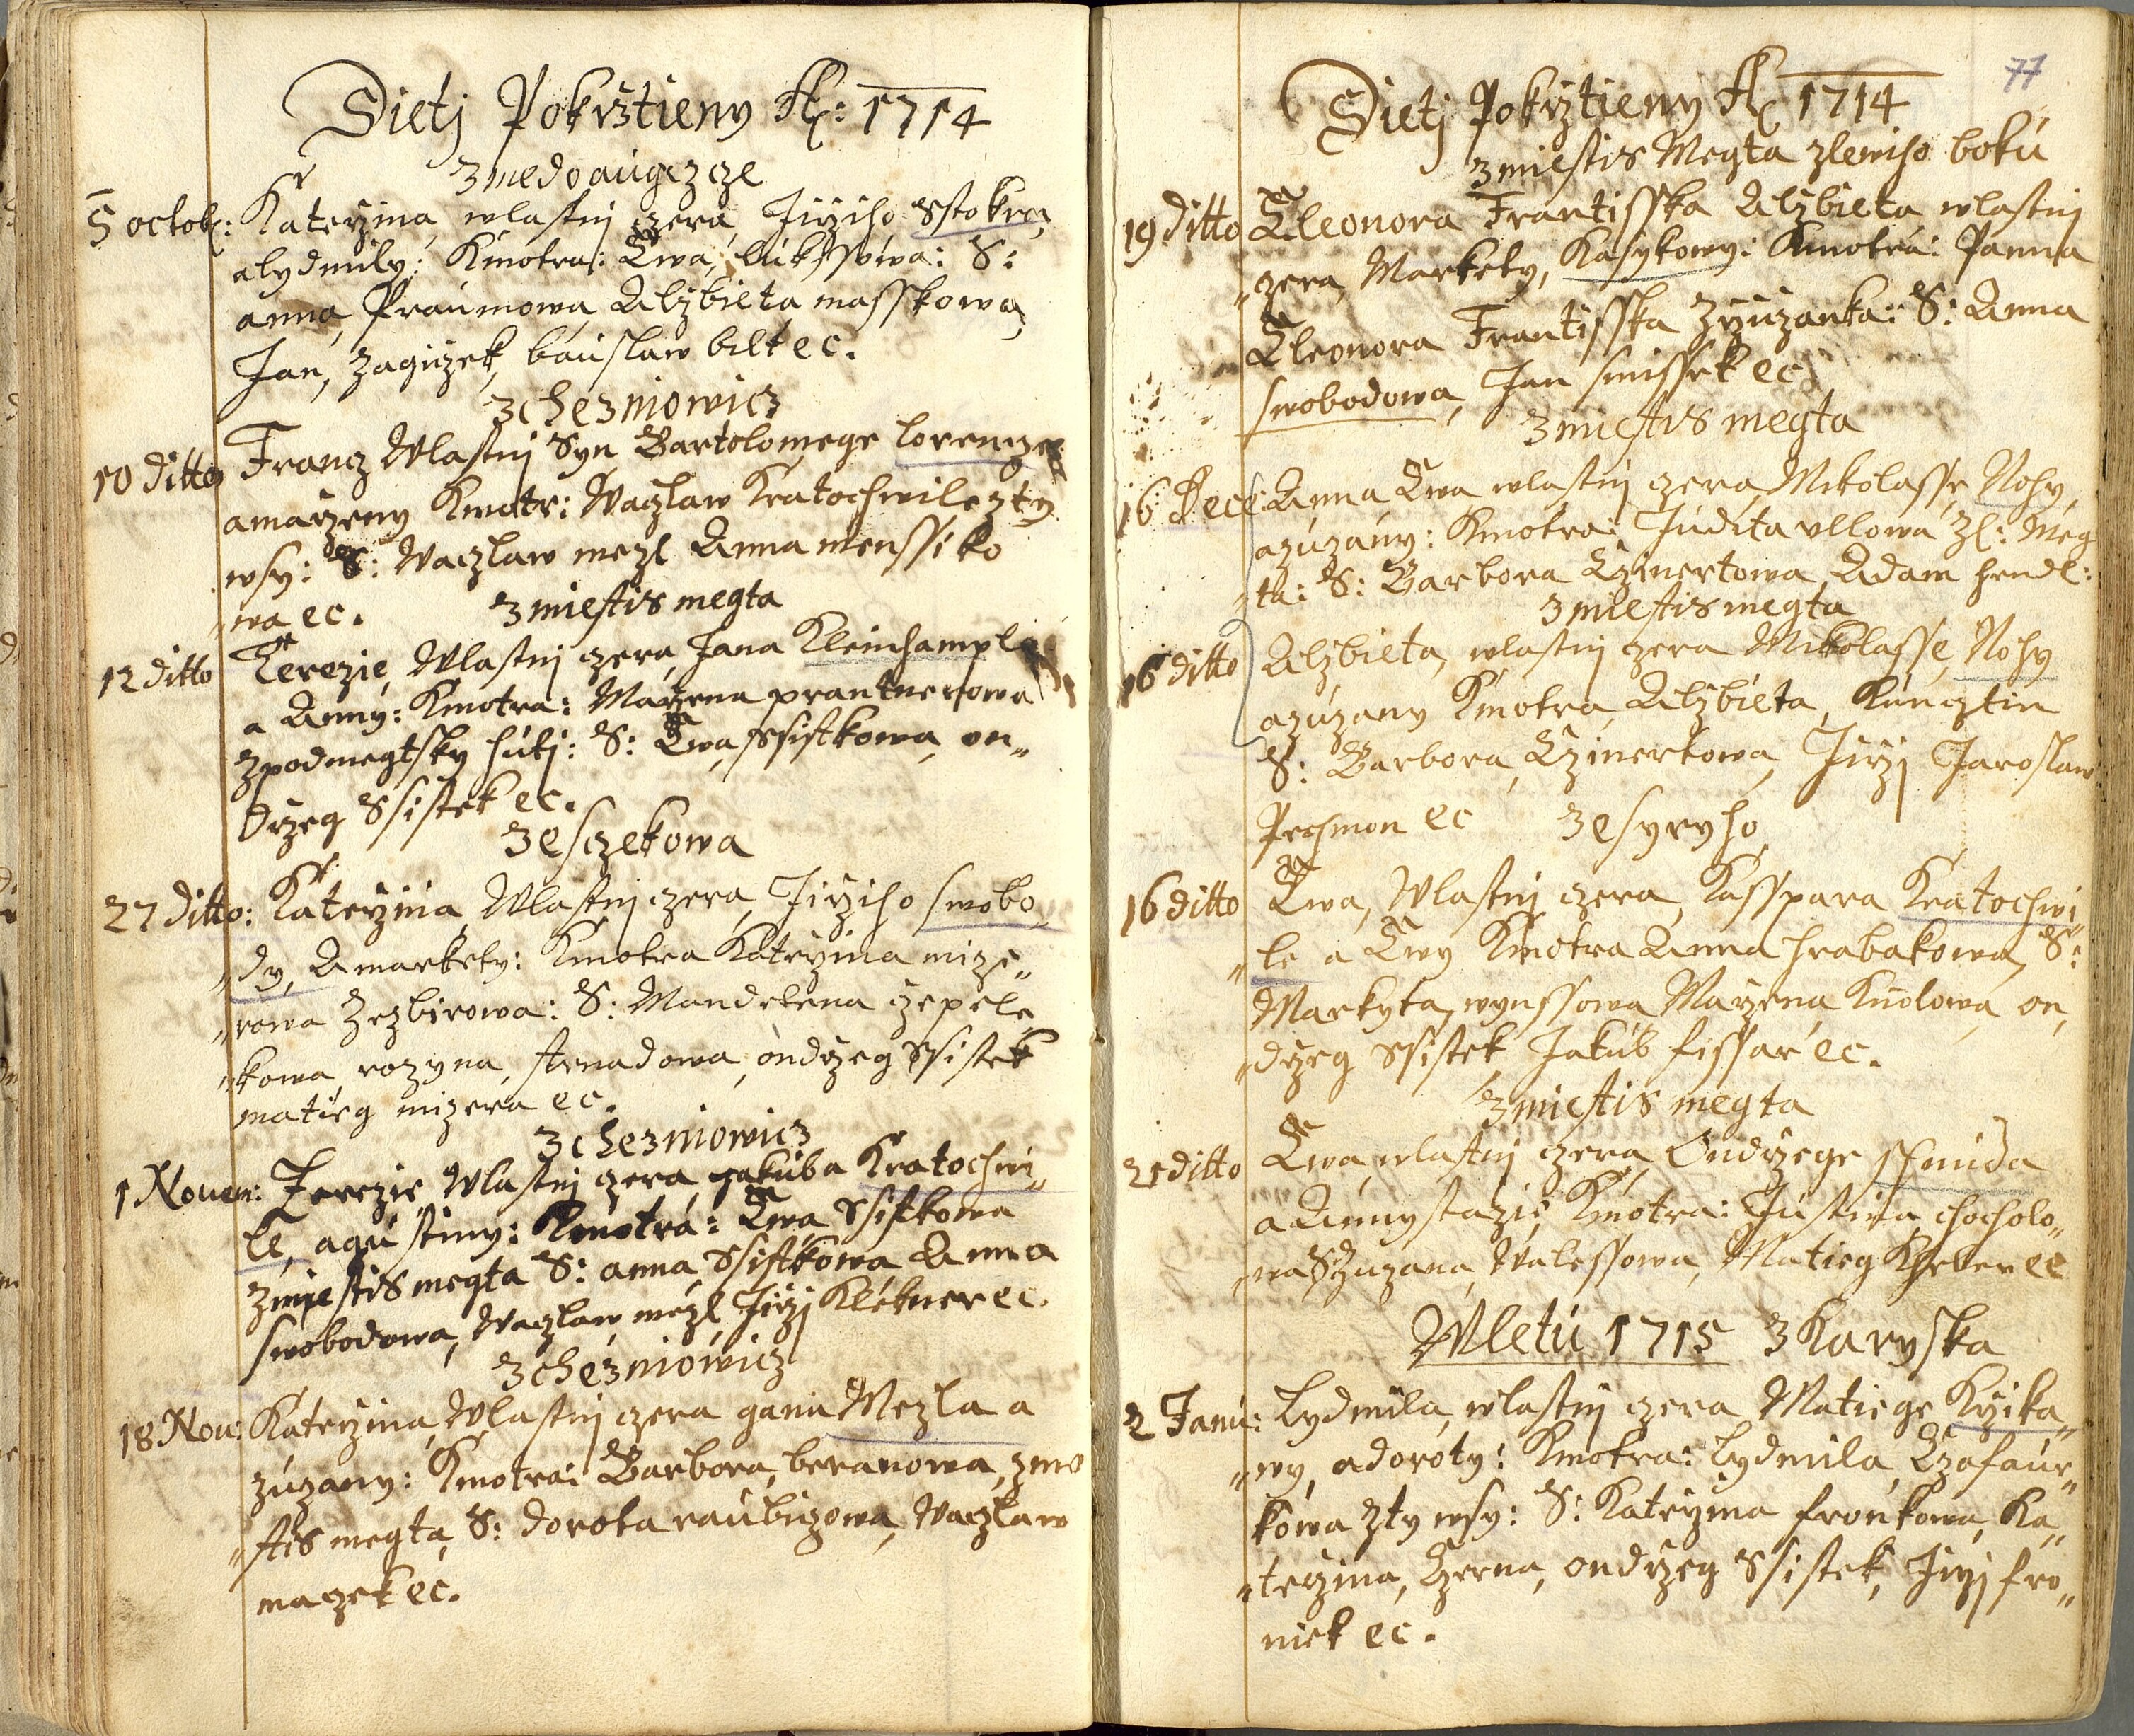 Dietj Pokrztieny A: 1714
z nedoaugczze
5 octob: Katerzina wlastnj czera Jirziho Sstokra
a lydmily: Kmotra: Ewa, lukssowa: S:
anna Praumowa Alzbieta masskowa
Jan, Zagiczek, bauslaw bilt ec.
z chezniowicz
10 ditto Francz Wlastnj Syn Bartolomege lorencze
a marzeny Kmotr: Waczlaw Kratochwile z ty
wsy: S: Waczlaw mezl Anna menssiko
wa ec. z miestis megta
12 ditto Terezie, Wlastnj czera Jana Kleinhample
a Anny: Kmotra: Marzena prantnerowa
z podmegtsky hutj: S: Ewa, Ssistkowa, on„
drzeg Ssistek ec.
z esczekowa
27 ditto: Katerzina Wlastnj czera, Jirziho swobo„
„dy, A markety: Kmotra Katerzina mize„
„rowa Zezbirowa: S: Mandelena czepele
„kowa, rozyna, strnadowa, ondrzeg Ssistek
matieg mizera ec.
z chezniowicz
1 Nouem: Terezie Wlastnj czera Jakuba Kratochwi„
le, a gustiny: Kmotra: Ewa Ssistkowa
z miestis megta S: anna Ssistkowa Anna
swobodowa, Waczlaw mezl Jirzj Klekner ec.
z chezniowicz
18 Nou: Katerzina, Wlastnj czera gana Mezla a
zuzany: Kmotra: Barbora, beranowa, z mie
„stis megta S: dorota raubiczowa, Waczlaw
maczek ec.
77
Dietj Pokrztieny A 1714
z miestis Megta z lewiho boku
19 ditto Eleonora Frantisska Alzbieta wlastnj
„czera, Markety, Kasykowy: Kmotra: Panna
Eleonora Frantisska Zyuzanka: S: Anna
swobodowa, Jan smissek ec
z miestis megta
16 Dece: Anna Ewa wlastnj czera Mikolasse Nohy,
a zuzany: Kmotra: Judita ullowa Zl: Meg
„ta: S: Barbora Czinertowa Adam hendl:
z miestis megta
16 ditto Alzbieta, wlastnj czera Mikolasse, Nohy
a zuzany Kmotra Alzbieta, Kuncztin
S: Barbora, Czinertowa, Jirzj Jaroslaw
Pechmon ec z esyryho
16 ditto Ewa, Wlastnj czera, Kasspara Kratochwi„
„le a Ewy Kmotra Anna hrabakowa, S:
Markyta wynssowa Marzena Kudlowa, on„
„drzeg Ssistek Jakub fissar ec.
z miestis megta
21 ditto Ewa wlastnj czera, Ondrzege Smida
a Annystazie Kmotra: Justina chocholo„
„wa S Zuzana, Walessowa, Matieg Kheber ec
Wletu 1715 z Karyska
2 Janu: Lydmila, wlastnj czera Matiege Krzika„
„wy, a doroty: Kmotra: lydmila, Czafaur„
kowa z ty wsy: S: Katerzina fronkowa, Ka„
„terzina, Czerna, ondrzeg Ssistek, Jirzj fro„
niek ec.